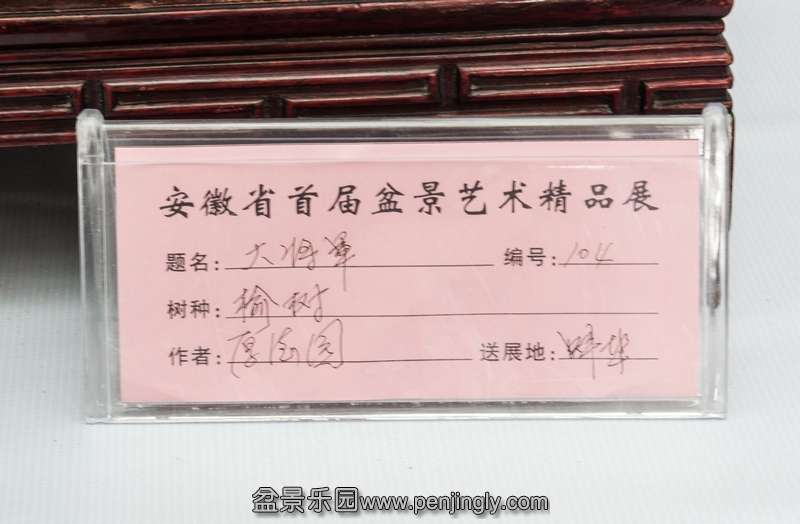 安徽省首届盆景艺术精品展
题名: 大将军 编号: 104
树种: 榆树
作者: 厚德园 送展地:
盆景乐园www.penjingly.com